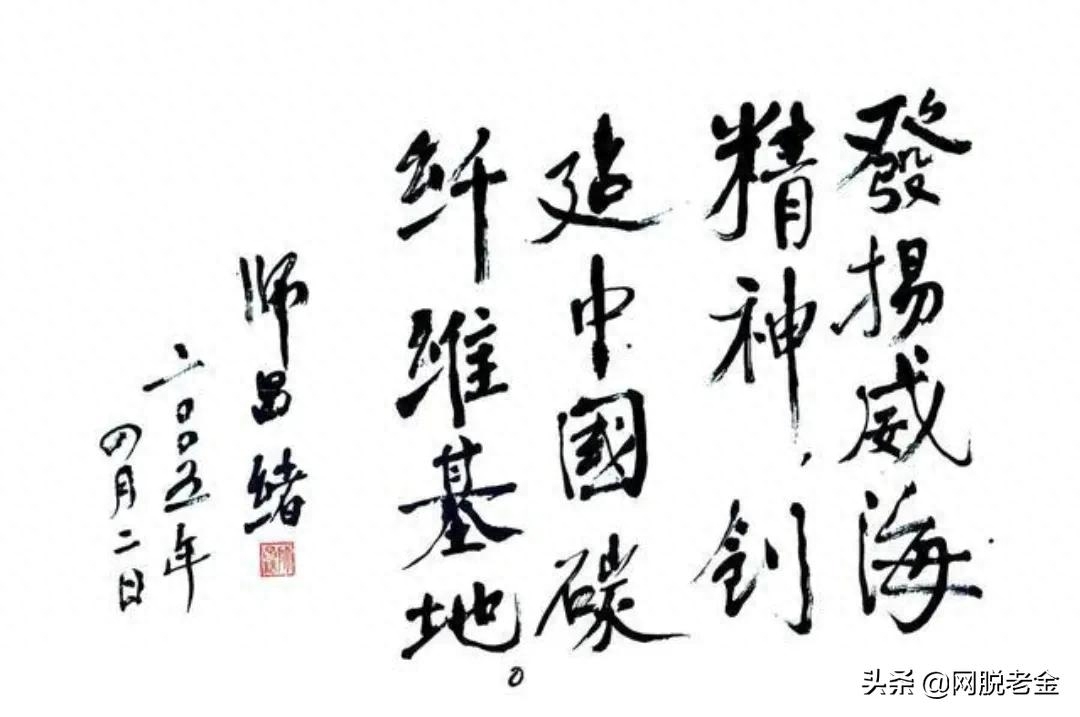 發揚威海
精神，创
建中國碳
纤维基地。
师昌绪
二〇〇五年
四月二日
头条 @网脱老金